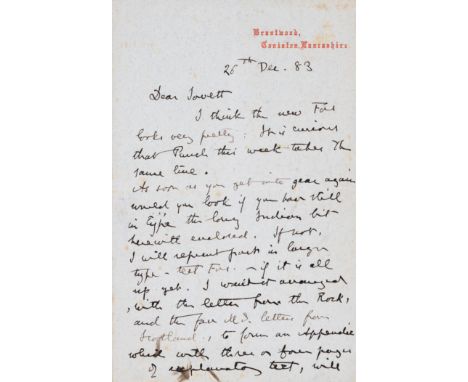 Brantwood,
Coniston, Lancashire
26th Dec. 83
Dear Jowett
I think the new Fors
looks very pretty. It is curious
that Punch this week takes the
same line.
As soon as you get into gear again
would you look if you have still
in type the long Indian bit
herewith enclosed. If not.
I will reprint part in larger
type - text Fors. - if it is all
up yet. I want it arranged
with the letter from the Rock,
and the few letters from
Scotland, to form an Appendix
which with three or four pages
of explanatory text, will